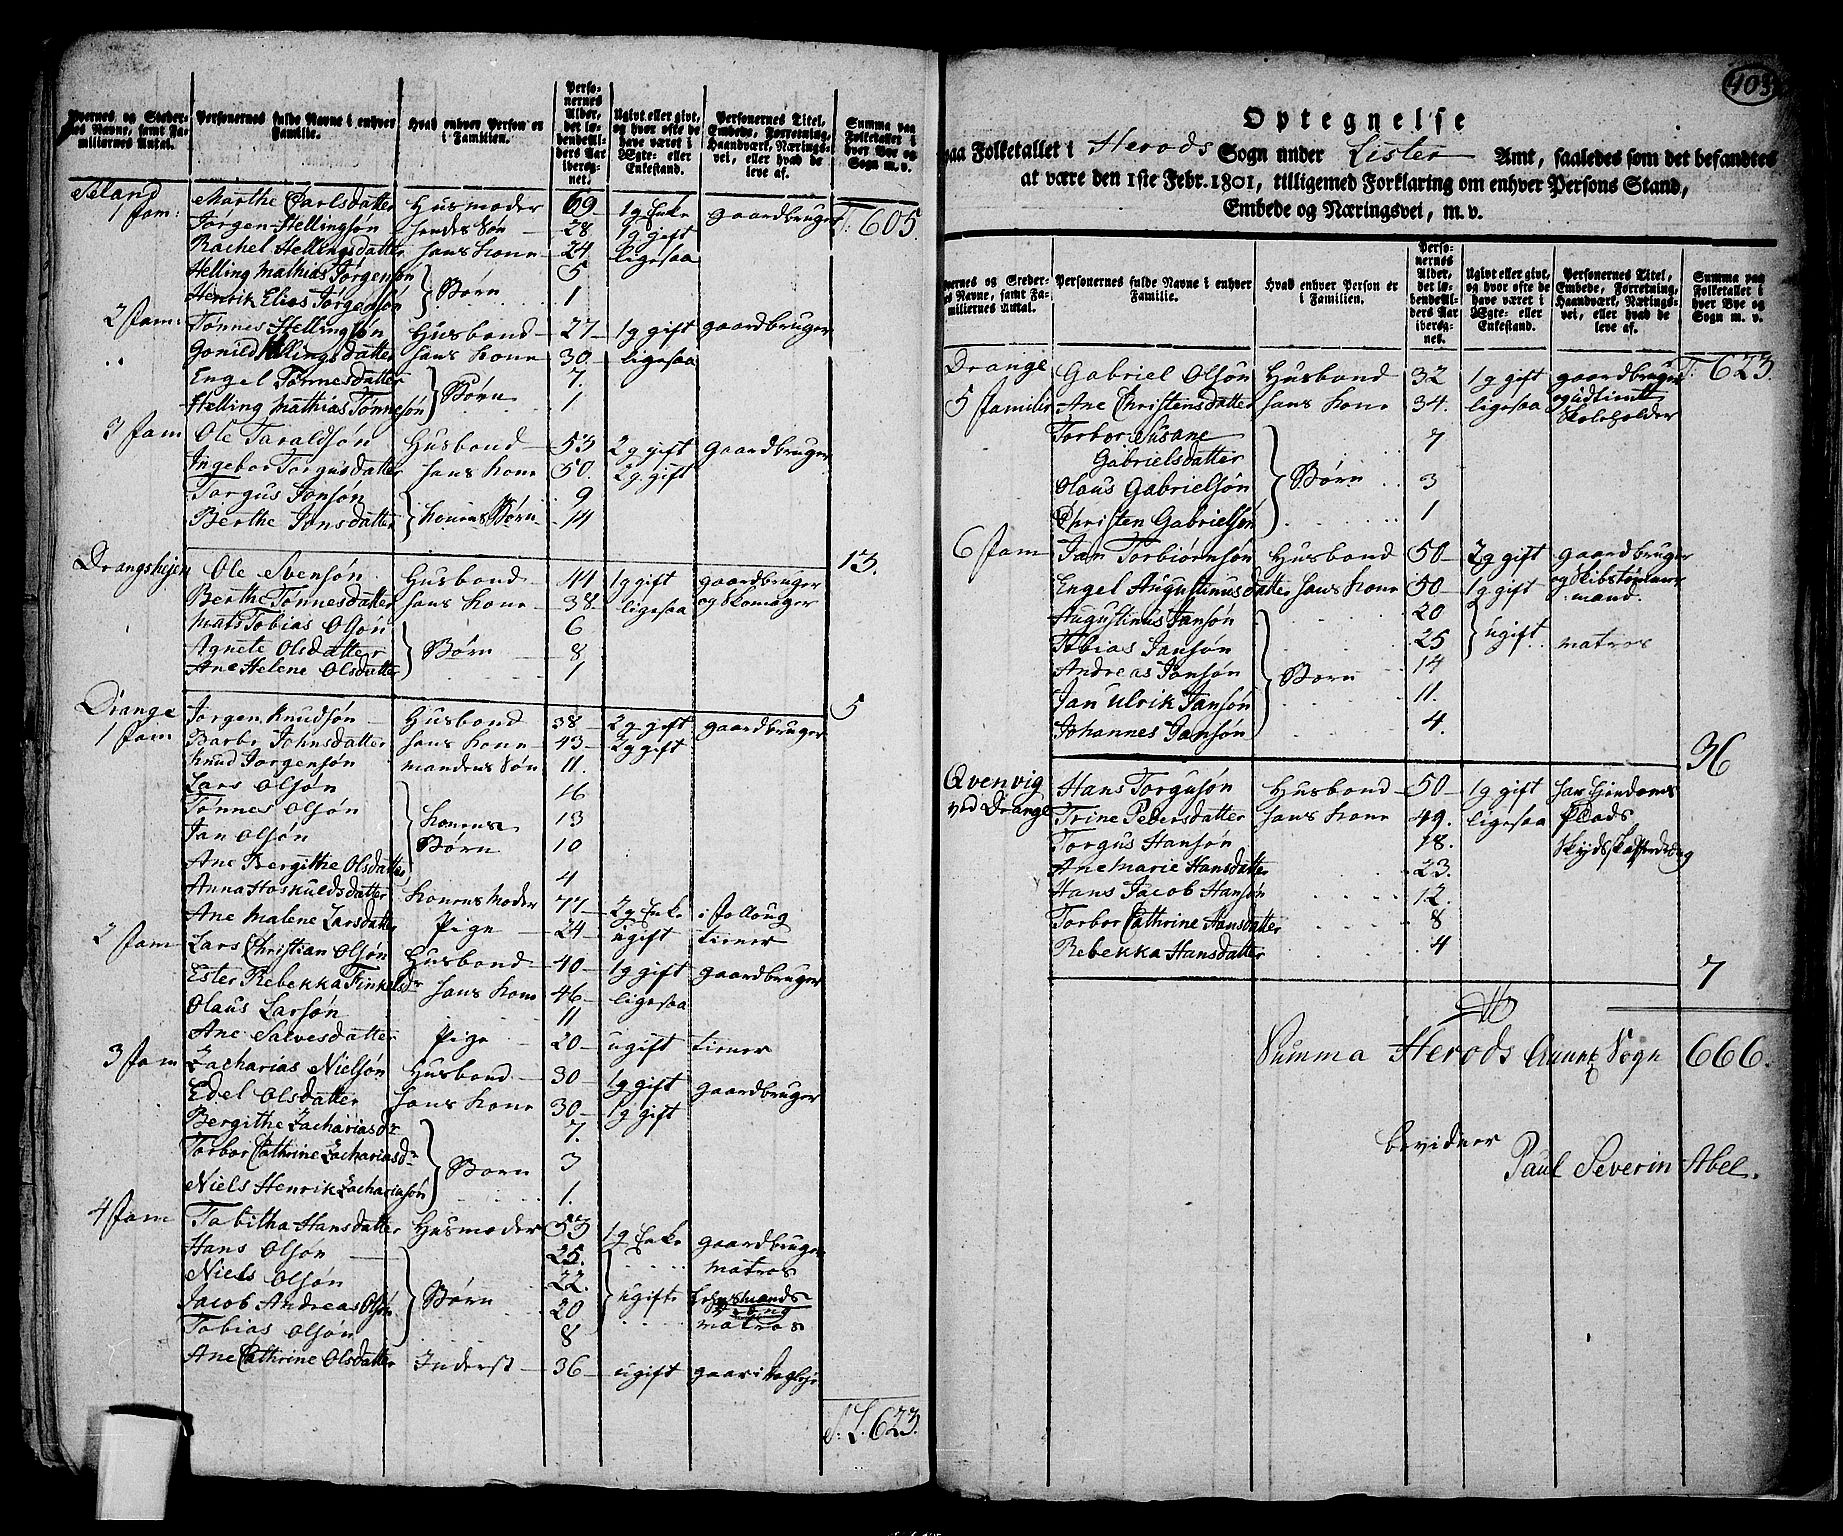 Byernes og Steder-
nes Navne, samt Fa-
milliernes Antal.
Personernes fulde Navne i enhver
Familie.
Hvad enhver Person er
i Familien.
Perso-
nernes
Alder,
det lø-
bende Al-
ders Aar
ibereg-
net.
Ugivt eller givt,
og hvor ofte de
have været i
Ægte- eller
Enkestand.
Personernes Titel,
Embede, Forretning,
Haandværk, Nærings-
vei, eller hvad de
leve af.
Summa paa
Folketallet i
hver Bye og
Sogn m. v.
Seland
1 fam: Marthe Carlsdatter Husmoder 69 1g Enke gaardbruger T: 605.
Jørgen Hellingsøn hendes Søn 28 1g gift
Rachel Hellingsdatter hans Kone 24 ligesaa
Helling Mathias Jørgensøn } Børn 5
Henrik Elias Jørgensøn 1
2 fam: Tønnes Hellingsøn Husbond 27 1g gift gaardbruger
Gonild Hellingsdatter hans Kone 30 ligesaa
Engel Tønnesdatter } Børn 7.
Helling Mathias Tønnesøn 1
3 fam Ole Taraldsøn Husbond 53 2g gift gaardbruger
Ingebor Torgusdatter hans Kone 50. 2g. gift
Torgus Jonsøn } Konens Børn 9
Berthe Jonsdatter 14
13.
Drangshejen Ole Svensøn Husbond 44 1g gift gaardbruger
Berthe Tønnesdatter hans Kone 38 ligesaa og Skomager
Mats Tobias Olsøn } Børn 6
Agnete Olsdatter 8
Ane Helene Olsdatter 1
5
Drange
1 fam Jørgen Knudsøn Husbond 38 2g gift gaardbruger
Barbr. Johnsdatter hans Kone 43 2g gift
Knud Jørgensøn mandens Søn 11.
Lars Olsøn } Konens Børn 16
Tønnes Olsøn 13
Jan Olsøn 10
Ane Bergitthe Olsdatter 4
Anna Hoskuldsdatter Konens Moder 77 2g Enke i folloug
Ane Malene Larsdatter Pige 24 ugift tiener
2 fam Lars Christian Olsøn Husbond 40 1g gift gaardbruger
Ester Rebekka Finkelsdr hans Kone 46 ligesaa
Olaus Larsøn 11
Ane Salvesdatter Pige 20 ugift tiener
3 fam Zacharias Nielsøn Husbond 30 1g gift gaardbruger
Edel Olsdatter hans Kone 30 1g gift
Bergithe Zachariasdr } Børn 7.
Torbor Cathrine Zachariasdr 3
Niels Henrik Zachariasøn 1.
4 fam Tabitha Hansdatter Husmoder 53 1g Enke gaardbruger
Hans Olsøn } Børn 25. } ugifte matros
Niels Olsøn 22.
Jacob Andreas Olsøn 20
Tobias Olsøn 8 matros
Ane Cathrine Olsdatter Inderst 36 ugift gaar i
S: L. 623.
403
Optegnelse
paa Folketallet i Herods Sogn under Lister Amt, saaledes som det befandtes
at være den 1ste Febr. 1801, tilligemed Forklaring om enhver Persons Stand,
Embede og Næringsvei, m. v.
Byernes og Steder-
nes Navne, samt Fa-
milliernes Antal.
Personernes fulde Navne i enhver
Familie.
Hvad enhver Person er
i Familien.
Perso-
nernes
Alder,
det lø-
bende Al-
ders Aar
iberег-
net.
Ugivt eller givt,
og hvor ofte de
have været i
Ægte- eller
Enkestand.
Personernes Titel,
Embede, Forretning,
Haandværk, Nærings-
vei, eller hvad de
leve af.
Summa paa
Folketallet i
hver Bye og
Sogn m. v.
Drange Gabriel Olsøn Husbond 32 1g gift gaardbruger T: 623.
5 familie Ane Christensdatter hans Kone 34. ligesaa og udtient Skoleholder
Torbor Susane
Gabrielsdatter } Børn 7
Olaus Gabrielsøn 3
Christen Gabrielsøn 1
6 fam Jan Torbiørnsøn Husbond 50 2g gift gaardbruger
Engel Augustinusdatter hans Kone 50 1g gift og Skibstømmer-
mand.
Augustinus Jansøn } Børn 20 } ugift
Tobias Jansøn 25 matros
Andreas Jansøn 14
Jan Ulrik Jansøn 11.
Johannes Jansøn 4.
36
Qvenvig
ved Drange Hans Torgusøn Husbond 50 1g gift har Eiendoms
Trine Pedersdatter hans Kone 49. ligesaa Plads
Torgus Hansøn 18.
Ane Marie Hansdatter 23.
Hans Jacob Hansøn 12.
Torbor Cathrine Hansdatter 8
Rebekka Hansdatter 4
7
Summa Herods Annex Sogn 666.
bevidner
Paul Severin Abel.